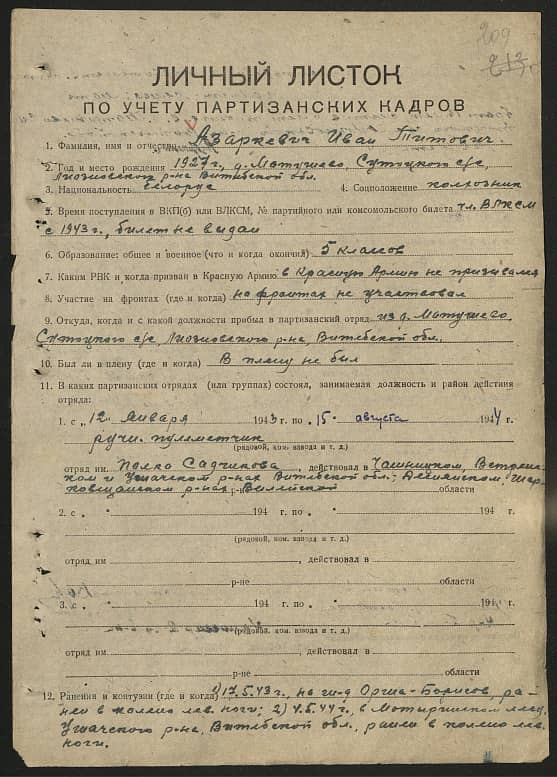 209
212
ЛИЧНЫЙ ЛИСТОК
ПО УЧЕТУ ПАРТИЗАНСКИХ КАДРОВ
1. Фамилия, имя и отчество Азаркевич Иван Титович.
2. Год и место рождения 1927г, д. Матушево, Сутоцкого с/с,
Лиозновского р-на Витебской обл.
3. Национальность белорус 4. Соцположение колхозник
5. Время поступления в ВКП(б) или ВЛКСМ, № партийного или комсомольского билета чл. ВЛКСМ
с 1943 г., билет не выдан
6. Образование: общее и военное (что и когда окончил) 5 классов
7. Каким РВК и когда призван в Красную Армию в Красную Армию не призывался
8. Участие на фронтах (где и когда) на фронтах не участвовал
9. Откуда, когда и с какой должности прибыл в партизанский отряд из д. Матушево,
Сутоцкого с/с, Лиозновского р-на, Витебской обл.
10. Был ли в плену (где и когда) В плену не был
11. В каких партизанских отрядах (или группах) состоял, занимаемая должность и район действия
отряда:
1. с „12" января 1943 г. по „15" августа 1944 г.
ручн. пулеметчик
(рядовой, ком. взвода и т. д.)
отряд им Полко Садчикова, действовал в Чашникском,
ком и Ушачском р-нах Витебской обл.;
р-не Вилейской области
2. с „ " 194 г. по „ " 194 г.
(рядовой, ком. взвода и т. д.)
отряд им , действовал в
р-не области
3. с „ " 194 г. по „ " 194 г.
(рядовой, ком. взвода и т. д.)
отряд им , действовал в
р-не области
12. Ранения и контузии (где и когда) 1) 17.5.43 г., на ж-д Орша-Борисов, ра-
нен в колено лев. ноги; 2) 4.5.44 г., в лесу,
Ушачского р-на, Витебской обл., ранен в колено лев.
ноги.